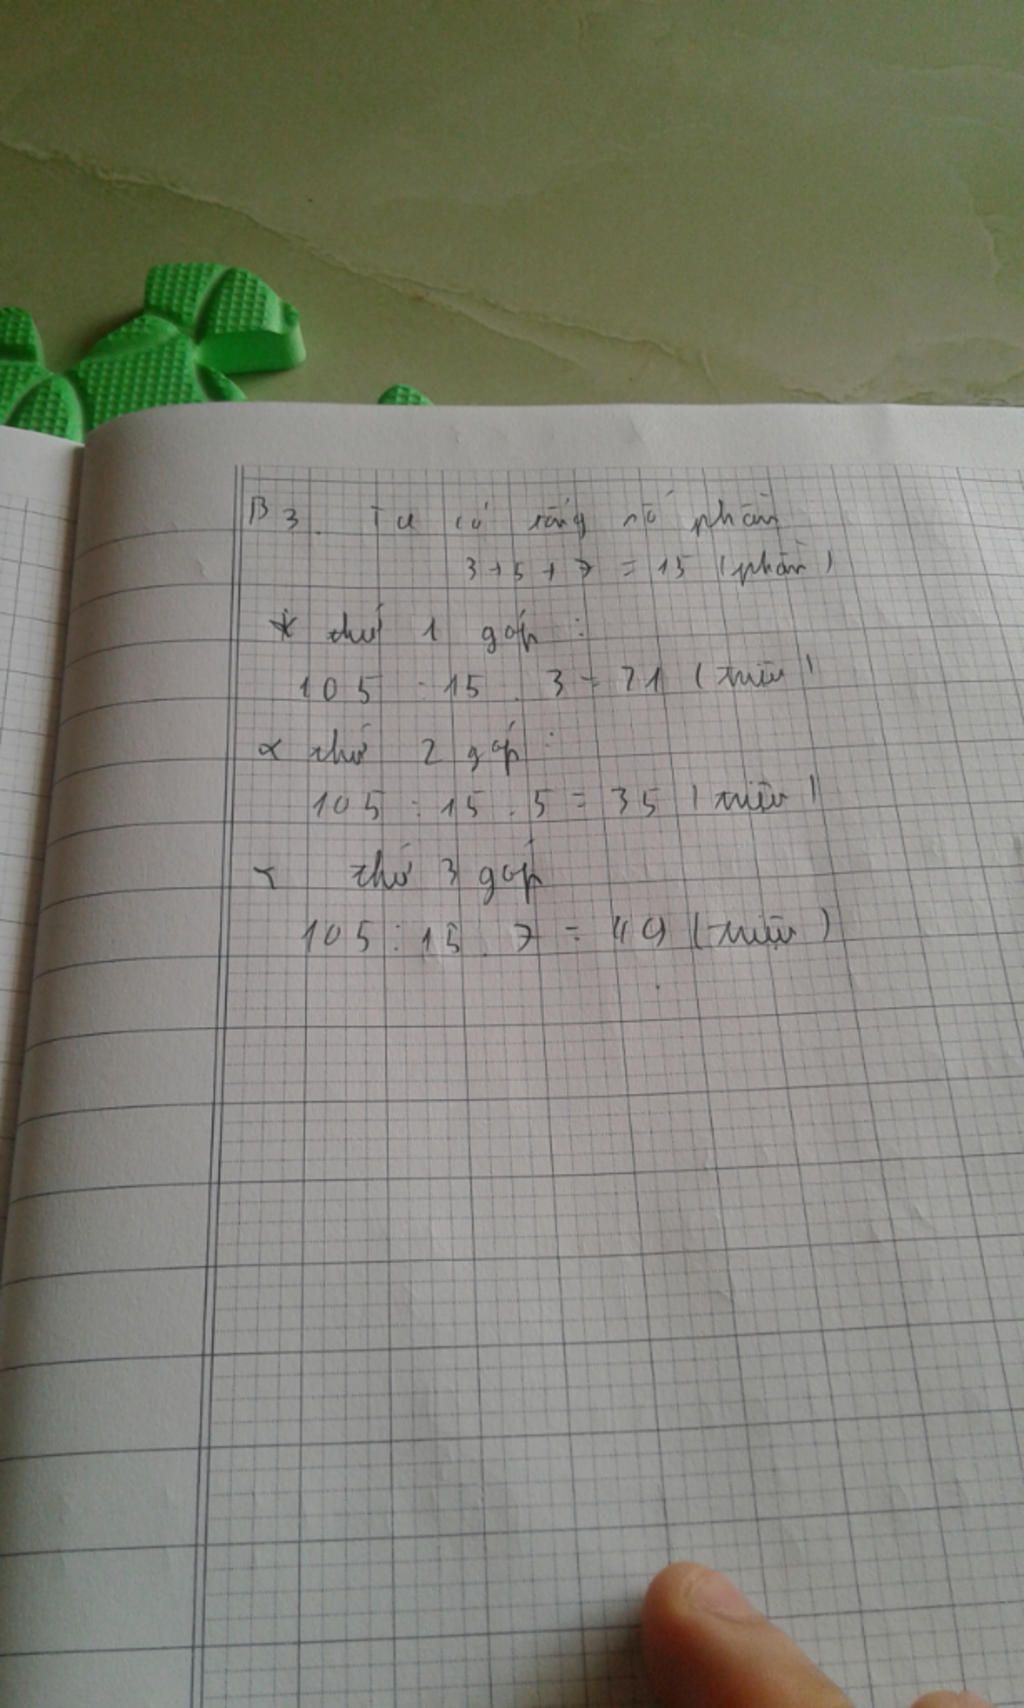 B3. Ta có tổng số phần
3 + 5 + 7 = 15 (phần)
* thứ 1 góp :
105 : 15 . 3 = 21 (triệu)
* thứ 2 góp :
105 : 15 . 5 = 35 (triệu)
* thứ 3 góp
105 : 15 . 7 = 49 (triệu)